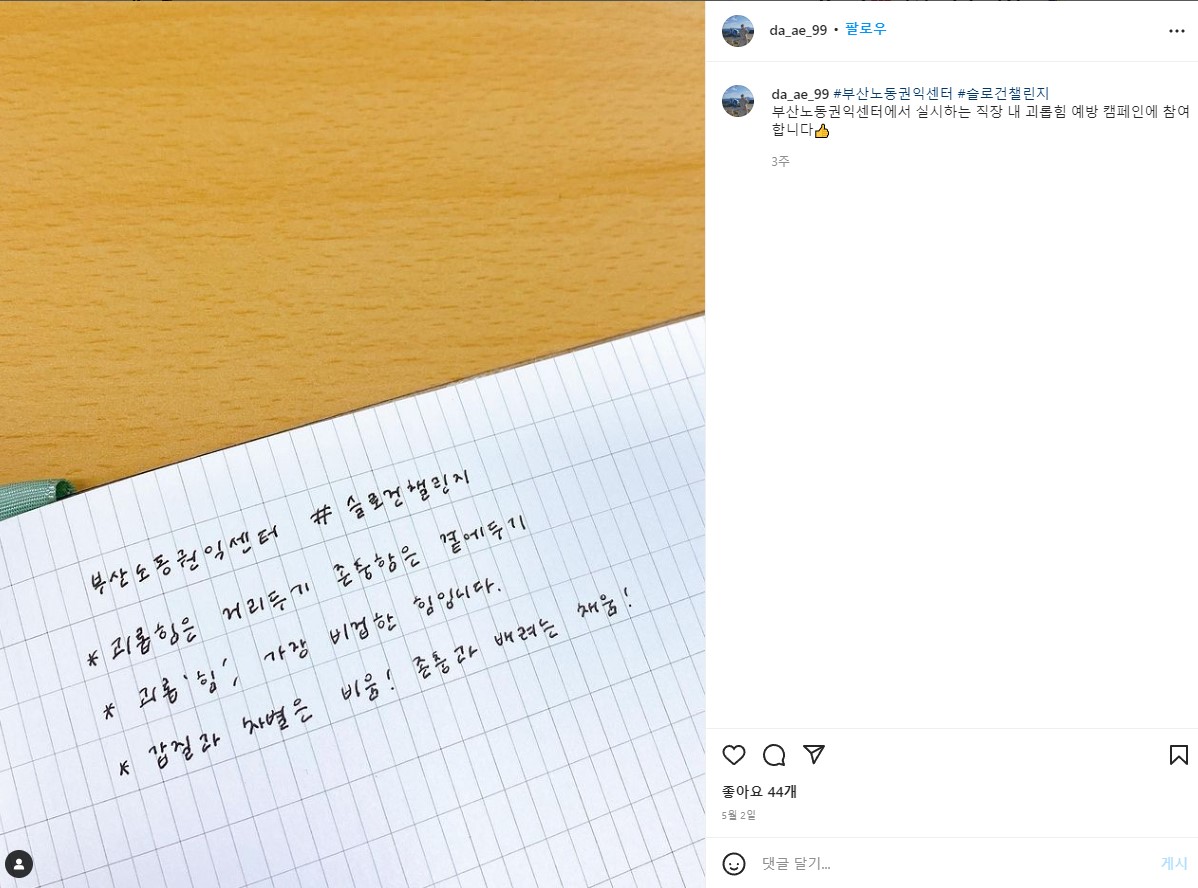 부산노동권익센터 # 슬로건챌린지
* 괴롭힘은 거리두기 존중함은 곁에두기
* 괴롭'힘', 가장 비겁한 힘입니다.
* 갑질과 차별은 비움! 존중과 배려는 채움!
da_ae_99 • 팔로우
da_ae_99 #부산노동권익센터 #슬로건챌린지
부산노동권익센터에서 실시하는 직장 내 괴롭힘 예방 캠페인에 참여
합니다👍
3주
좋아요 44개
5월 2일
댓글 달기...
게시